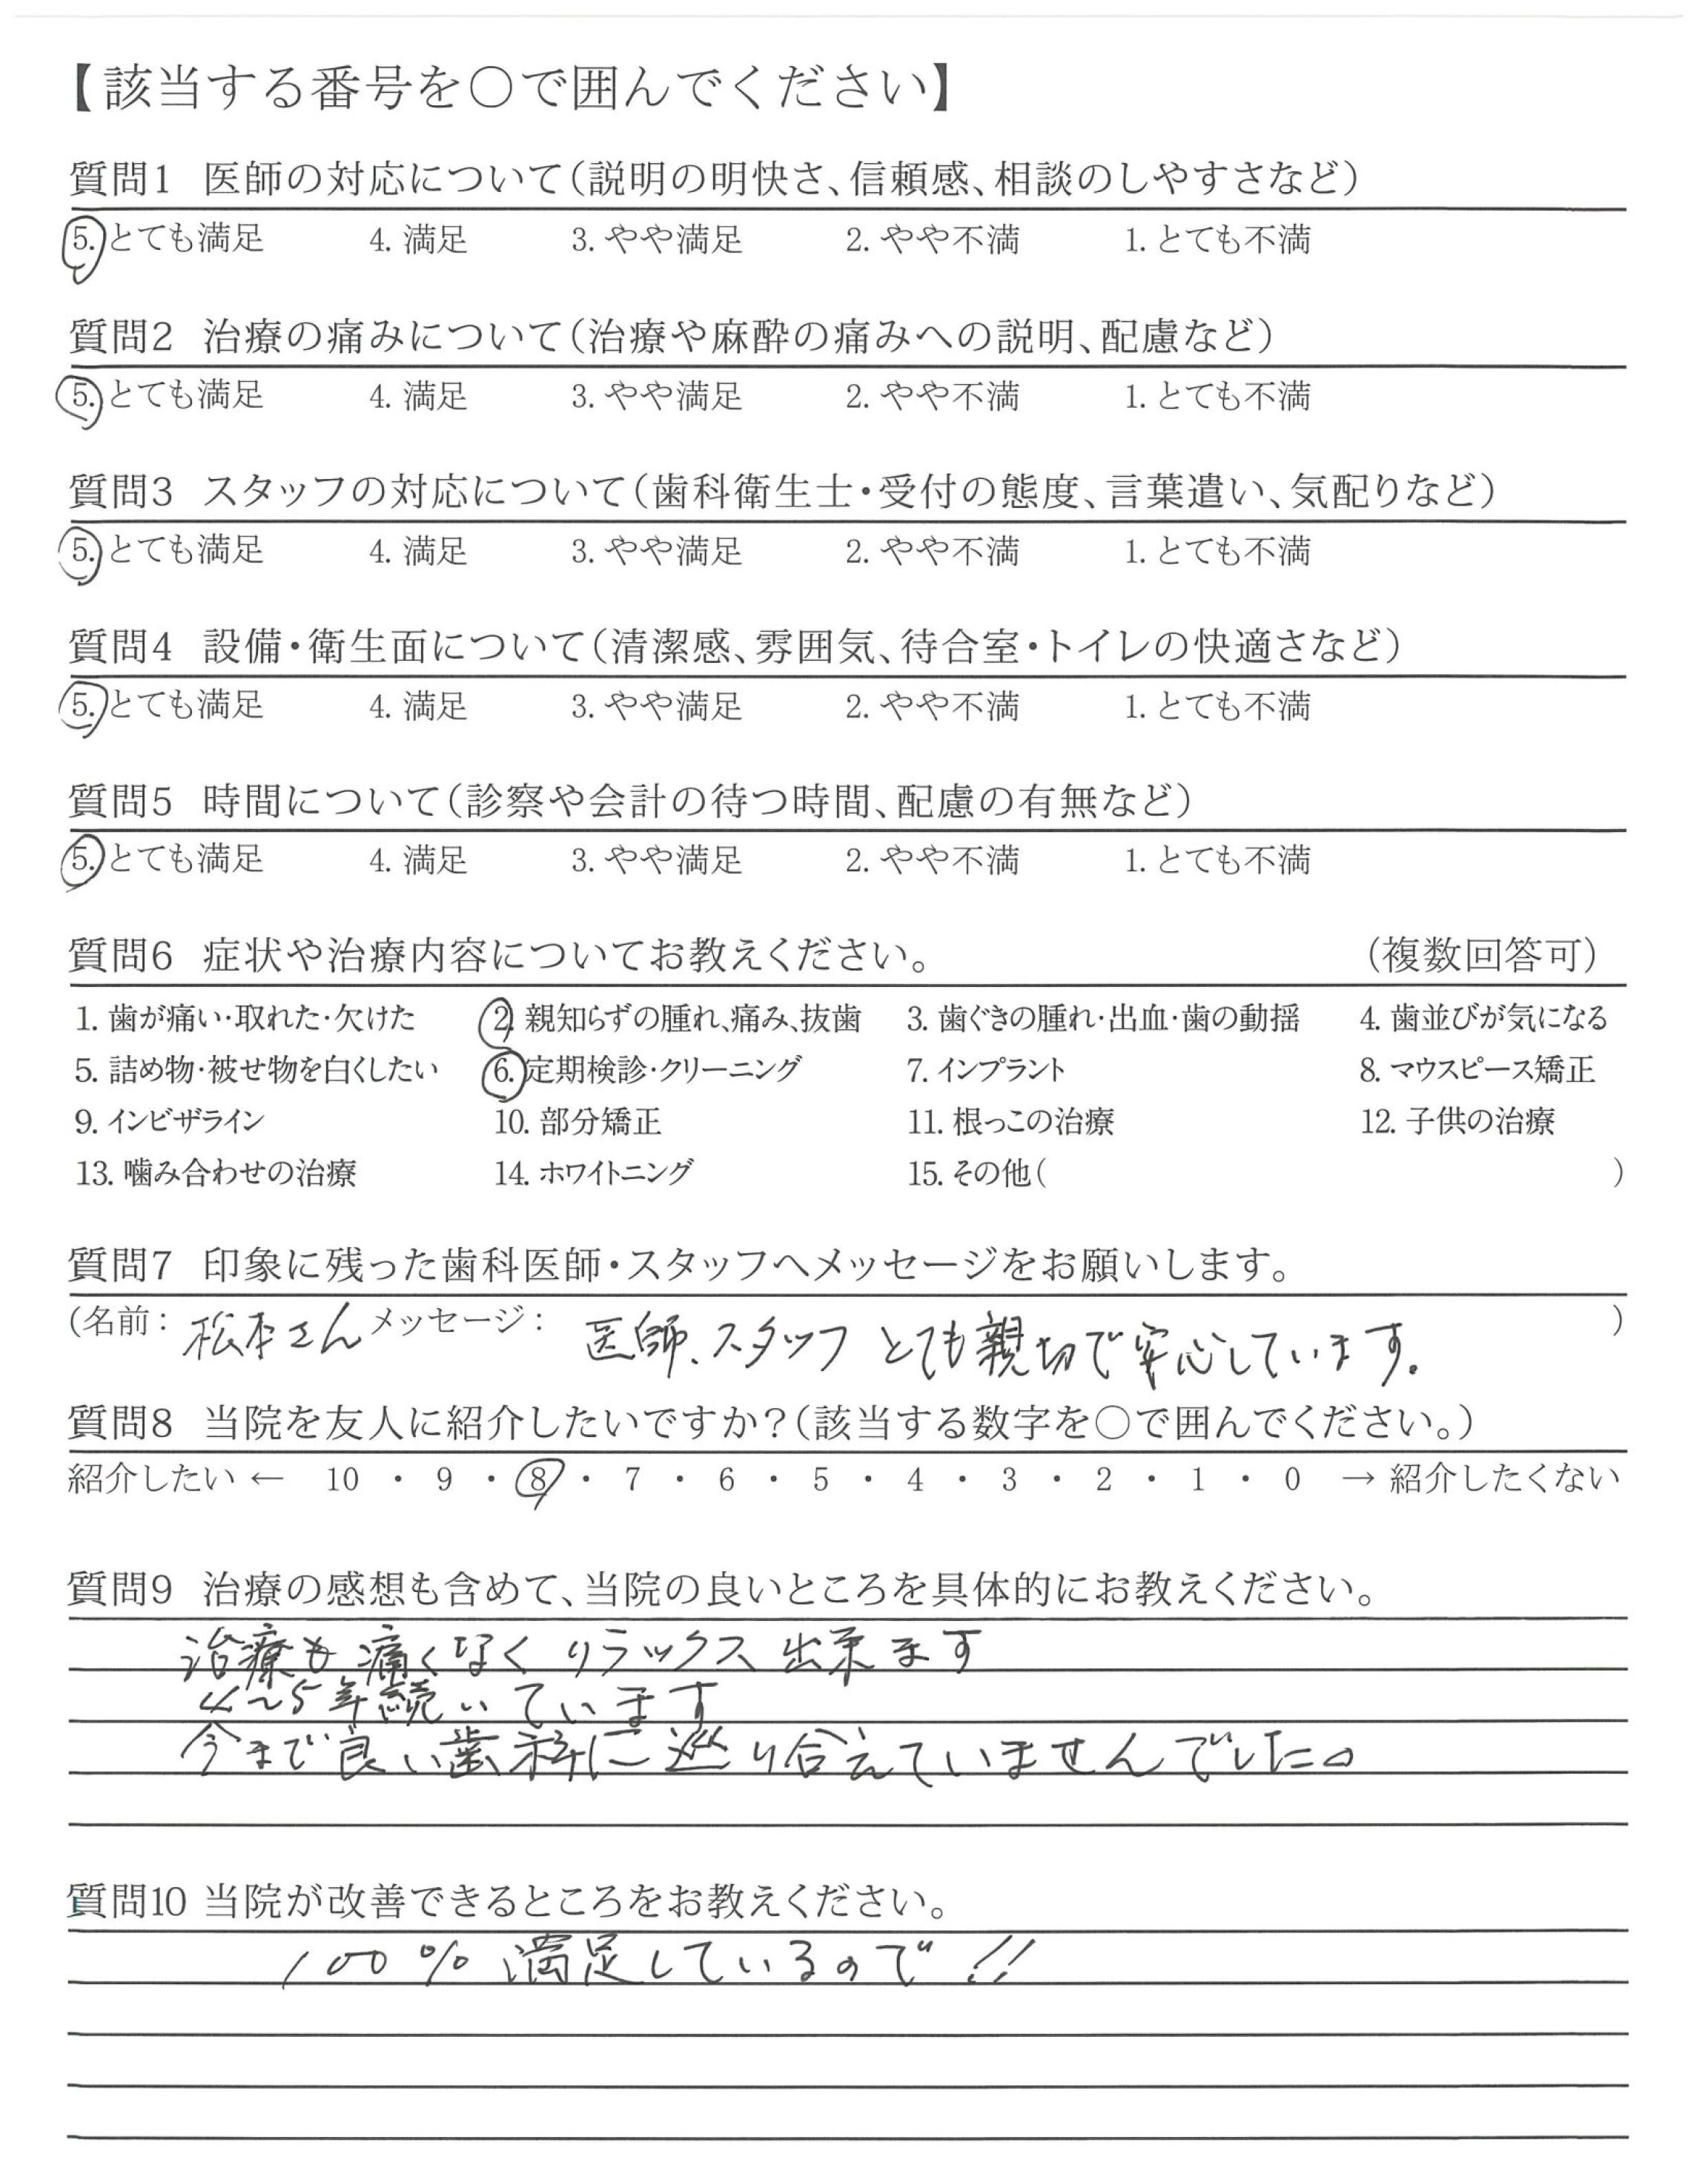 【該当する番号を○で囲んでください】
質問1 医師の対応について(説明の明快さ、信頼感、相談のしやすさなど)
5. とても満足 4. 満足 3. やや満足 2. やや不満 1. とても不満
質問2 治療の痛みについて(治療や麻酔の痛みへの説明、配慮など)
5. とても満足 4. 満足 3. やや満足 2. やや不満 1. とても不満
質問3 スタッフの対応について(歯科衛生士・受付の態度、言葉遣い、気配りなど)
5. とても満足 4. 満足 3. やや満足 2. やや不満 1. とても不満
質問4 設備・衛生面について(清潔感、雰囲気、待合室・トイレの快適さなど)
5. とても満足 4. 満足 3. やや満足 2. やや不満 1. とても不満
質問5 時間について(診察や会計の待つ時間、配慮の有無など)
5. とても満足 4. 満足 3. やや満足 2. やや不満 1. とても不満
質問6 症状や治療内容についてお教えください。 (複数回答可)
1. 歯が痛い・取れた・欠けた 2. 親知らずの腫れ、痛み、抜歯 3. 歯ぐきの腫れ・出血・歯の動揺 4. 歯並びが気になる
5. 詰め物・被せ物を白くしたい 6. 定期検診・クリーニング 7. インプラント 8. マウスピース矯正
9. インビザライン 10. 部分矯正 11. 根っこの治療 12. 子供の治療
13. 噛み合わせの治療 14. ホワイトニング 15. その他( )
質問7 印象に残った歯科医師・スタッフへメッセージをお願いします。
(名前: 松本さん メッセージ: 医師、スタッフ とても親切で安心しています。 )
質問8 当院を友人に紹介したいですか?(該当する数字を○で囲んでください。)
紹介したい ← 10 ・ 9 ・ 8 ・ 7 ・ 6 ・ 5 ・ 4 ・ 3 ・ 2 ・ 1 ・ 0 → 紹介したくない
質問9 治療の感想も含めて、当院の良いところを具体的にお教えください。
治療も痛くなく リラックス出来ます
4~5年続いています
今まで良い歯科に巡り合えていませんでした。
質問10 当院が改善できるところをお教えください。
100% 満足しているので!!